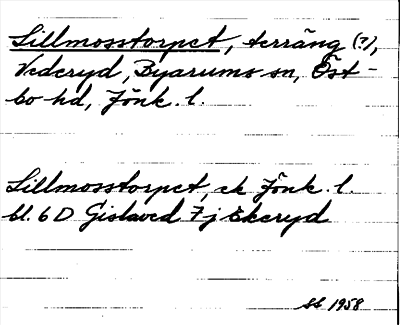 Lillmosstorpet, terräng (?),
Vederyd, Byarums sn, Öst-
bo hd, Jönk. l.
Lillmosstorpet, ek Jönk. l.
bl. 6 D Gislaved 7 j Ekeryd
1958